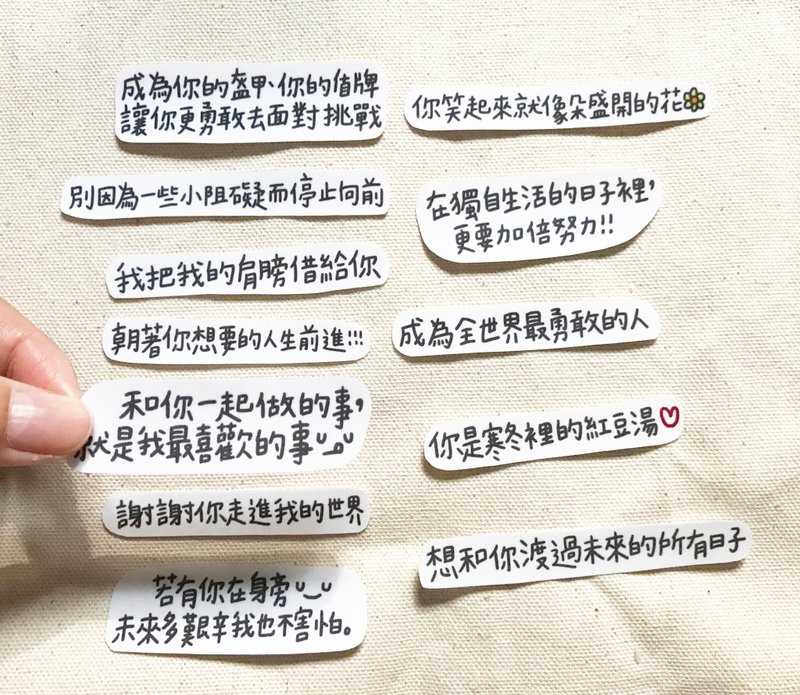 成為你的盔甲、你的盾牌
讓你更勇敢去面對挑戰
別因為一些小阻礙而停止向前
我把我的肩膀借給你
朝著你想要的人生前進!!!
和你一起做的事,
就是我最喜歡的事
謝謝你走進我的世界
若有你在身旁
未來多艱辛我也不害怕。
你笑起來就像朵盛開的花
在獨自生活的日子裡,
更要加倍努力!!
成為全世界最勇敢的人
你是寒冬裡的紅豆湯
想和你渡過未來的所有日子